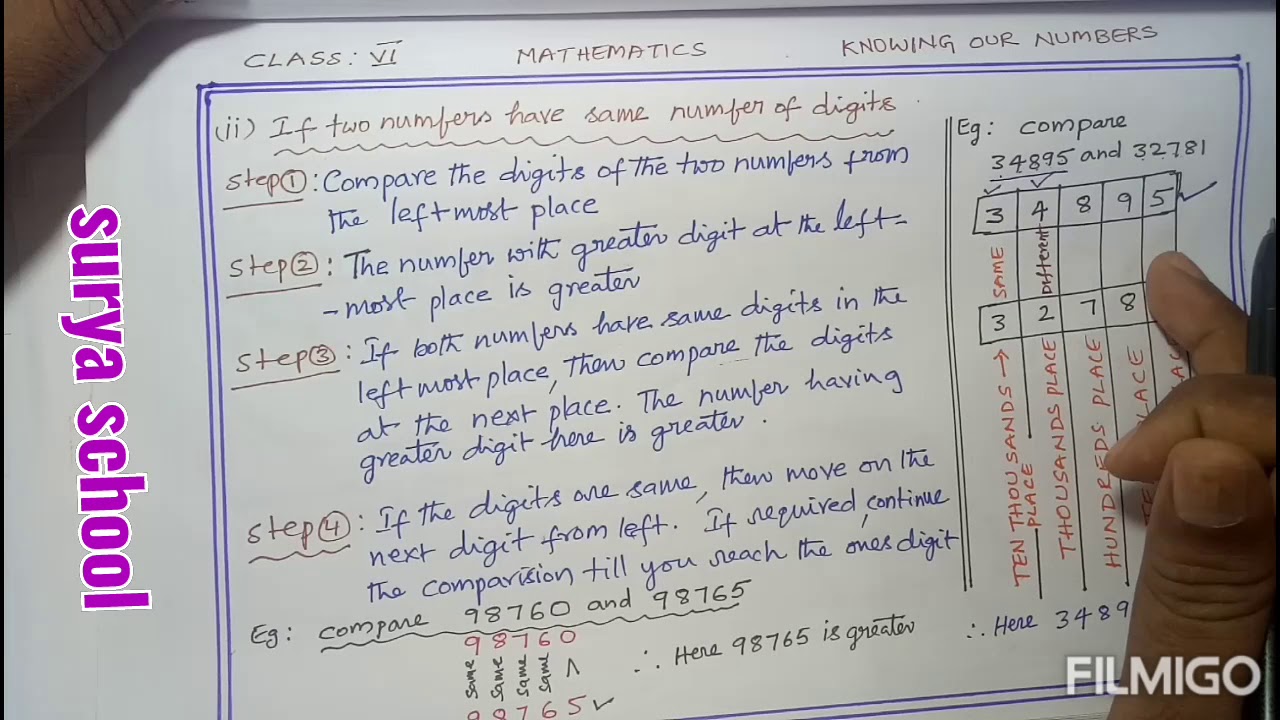 CLASS: VI MATHEMATICS KNOWING OUR NUMBERS
(ii) If two numbers have same number of digits
Step①: Compare the digits of the two numbers from
the left most place
Step②: The number with greater digit at the left-
- most place is greater
Step③: If both numbers have same digits in the
left most place, then compare the digits
at the next place. The number having
greater digit here is greater.
Step④: If the digits are same, then move on the
next digit from left. If required, continue
the comparision till you reach the ones digit
Eg: compare 98760 and 98765
98760
same same same same ∧
98765 ✓
∴ Here 98765 is greater
Eg: compare
34895 and 32781
3 4 8 9 5 ✓
SAME Different
3 2 7 8
TEN THOUSANDS → PLACE
THOUSANDS PLACE
HUNDREDS PLACE
PLACE
∴ Here 3489
surya school
FILMIGO